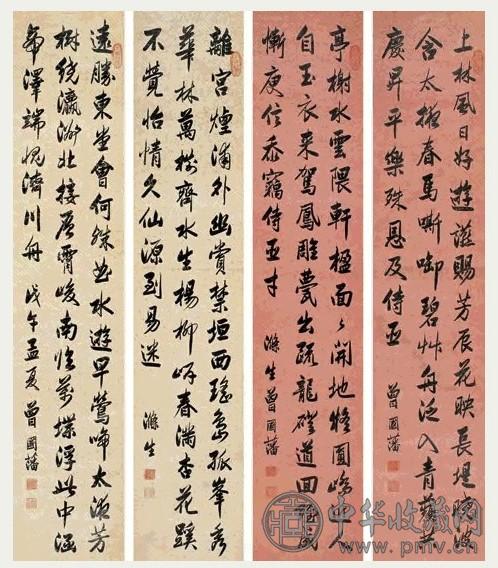 上林風日好遊賜芳辰花映長堤波
含太液春馬嘶啣碧艸舟泛入青蘋共
慶昇平樂殊恩及侍臣 曾國藩
亭榭水雲隈軒楹面〻開地將圓嶠人
自玉衣來駕鳳雕甍出疏龍磴道回
慚庾信忝竊侍臣才 滌生曾國藩
離宮煙浦外幽賞禁垣西瑤島孤峯秀
華林萬樹齊水生楊柳岍春滿杏花蹊
不覺怡情久仙源到易迷 滌生
遠勝東堂會何殊曲水遊早鶯啼太液芳
樹繞瀛洲北接層霄峻南臨萬堞浮此中涵
帝澤端愧濟川舟 戊午孟夏曾國藩
中华收藏网
www.pmv.cn